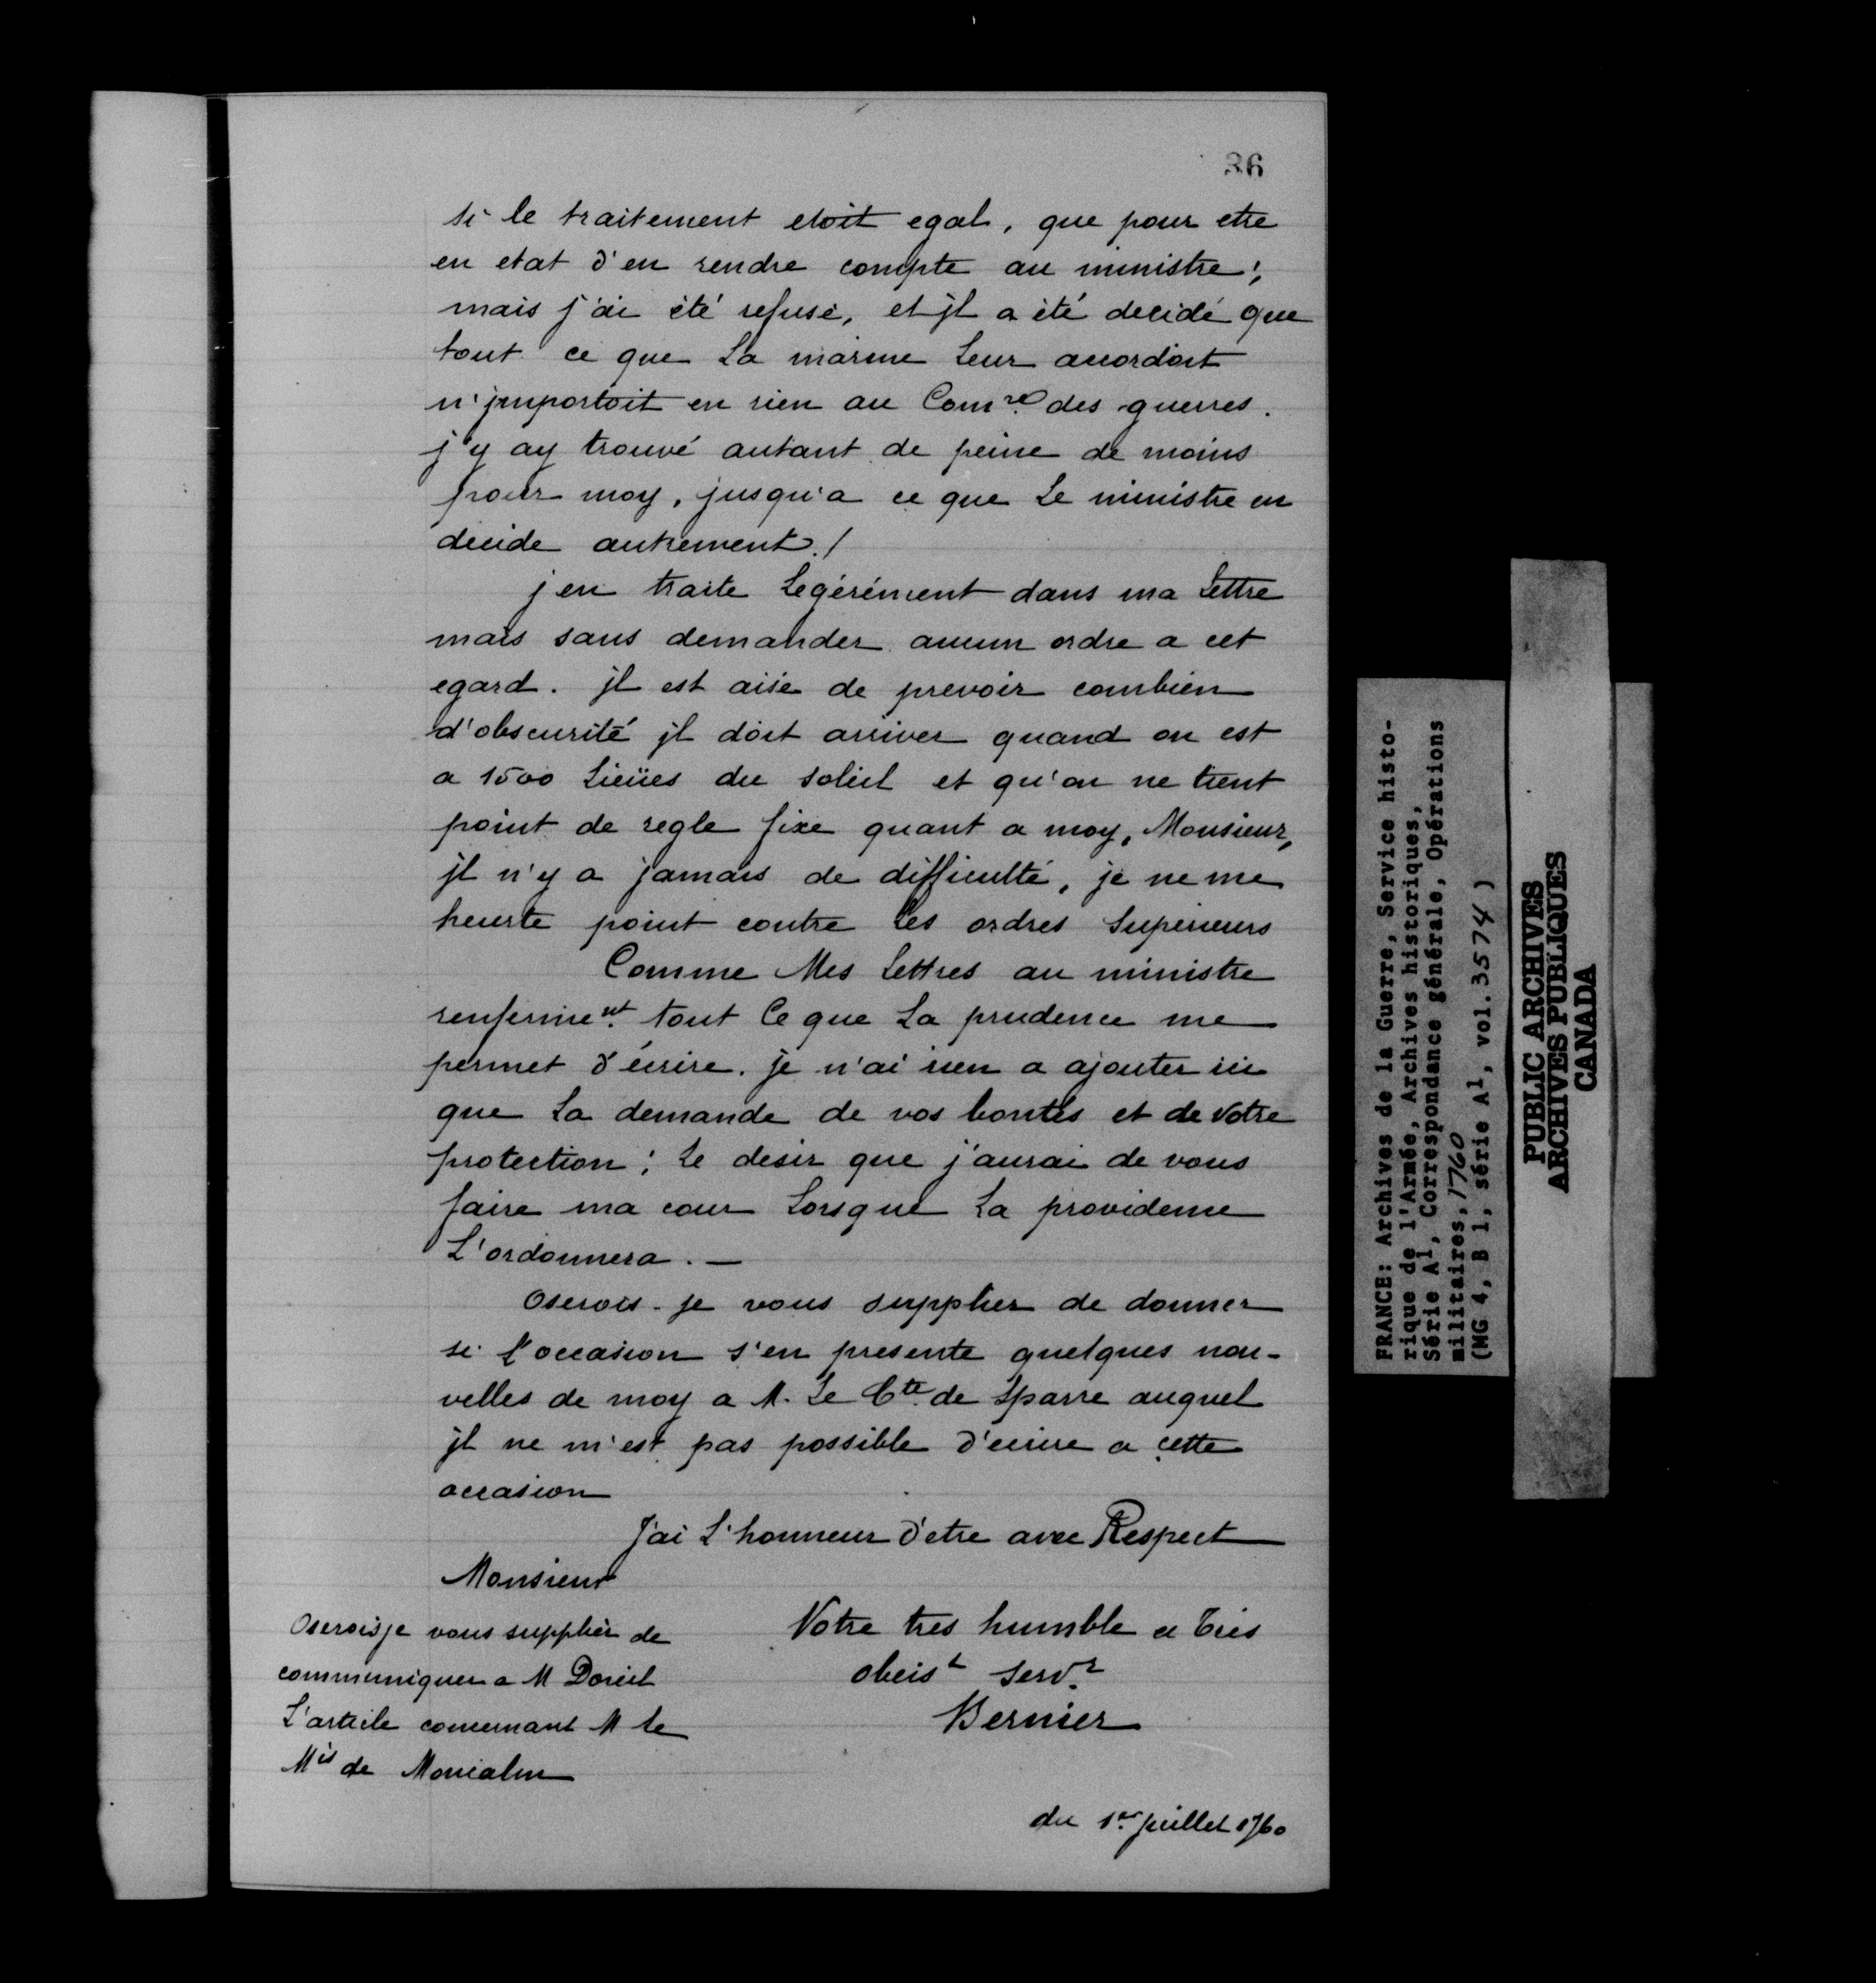 36
si le traitement etoit egal, que pour etre
en etat d'en rendre compte au ministre;
mais j'ai été refusé, et jl a été decidé que
tout ce que La marine Leur accordoit
n'jmportoit en rien au Com.re des guerres.
j'y ay trouvé autant de peine de moins
pour moy, jusqu'a ce que Le ministre en
decide autrement./
j'en traite Legérément dans ma Lettre
mais sans demander aucun ordre a cet
egard. jl est aisé de prevoir combien
d'obscurité jl doit arriver quand on est
a 1500 Lieües du soleil et qu'on ne tient
point de regle fixe quant a moy, Monsieur,
jl n'y a jamais de difficulté, je ne me
heurte point contre Les ordres Superieurs
Comme Mes Lettres au ministre
renferme.nt tout Ce que La prudence me
permet d'écrire. je n'ai rien a ajouter ici
que La demande de vos bontés et de Votre
protection; Le desir que j'aurai de vous
faire ma cour Lorsque La providence
L'ordonnera. —
Oserois-je vous supplier de donner
si l'occasion s'en presente quelques nou-
velles de moy a M. Le Cte de Sparre auquel
jl ne m'est pas possible d'ecrire a cette
occasion
J'ai L'honneur d'etre avec Respect
Monsieur
Votre tres humble et Très
obeist Servr
Bernier
Oseroisje vous supplier de
communiquer a M Doreil
L'article concernant M le
Mis de Moncalm
du 1er juillet 1760
FRANCE: Archives de la Guerre, Service histo-
rique de l'Armée, Archives historiques,
Série A1, Correspondance générale, Opérations
militaires, 1760
(MG 4, B 1, série A1, vol. 3574)
PUBLIC ARCHIVES
ARCHIVES PUBLIQUES
CANADA